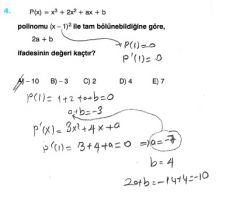 4.
P(x) = x³ + 2x² + ax + b
polinomu (x – 1)² ile tam bölünebildiğine göre,
2a + b
P(1)=0
ifadesinin değeri kaçtır?
P'(1)=0
A) – 10 B) – 3 C) 2 D) 4 E) 7
P(1)=1+2+a+b=0
a+b=-3
P'(x)=3x²+4x+a
P'(1)=3+4+a=0 ⇒ a=-7
b=4
2a+b=-14+4=-10